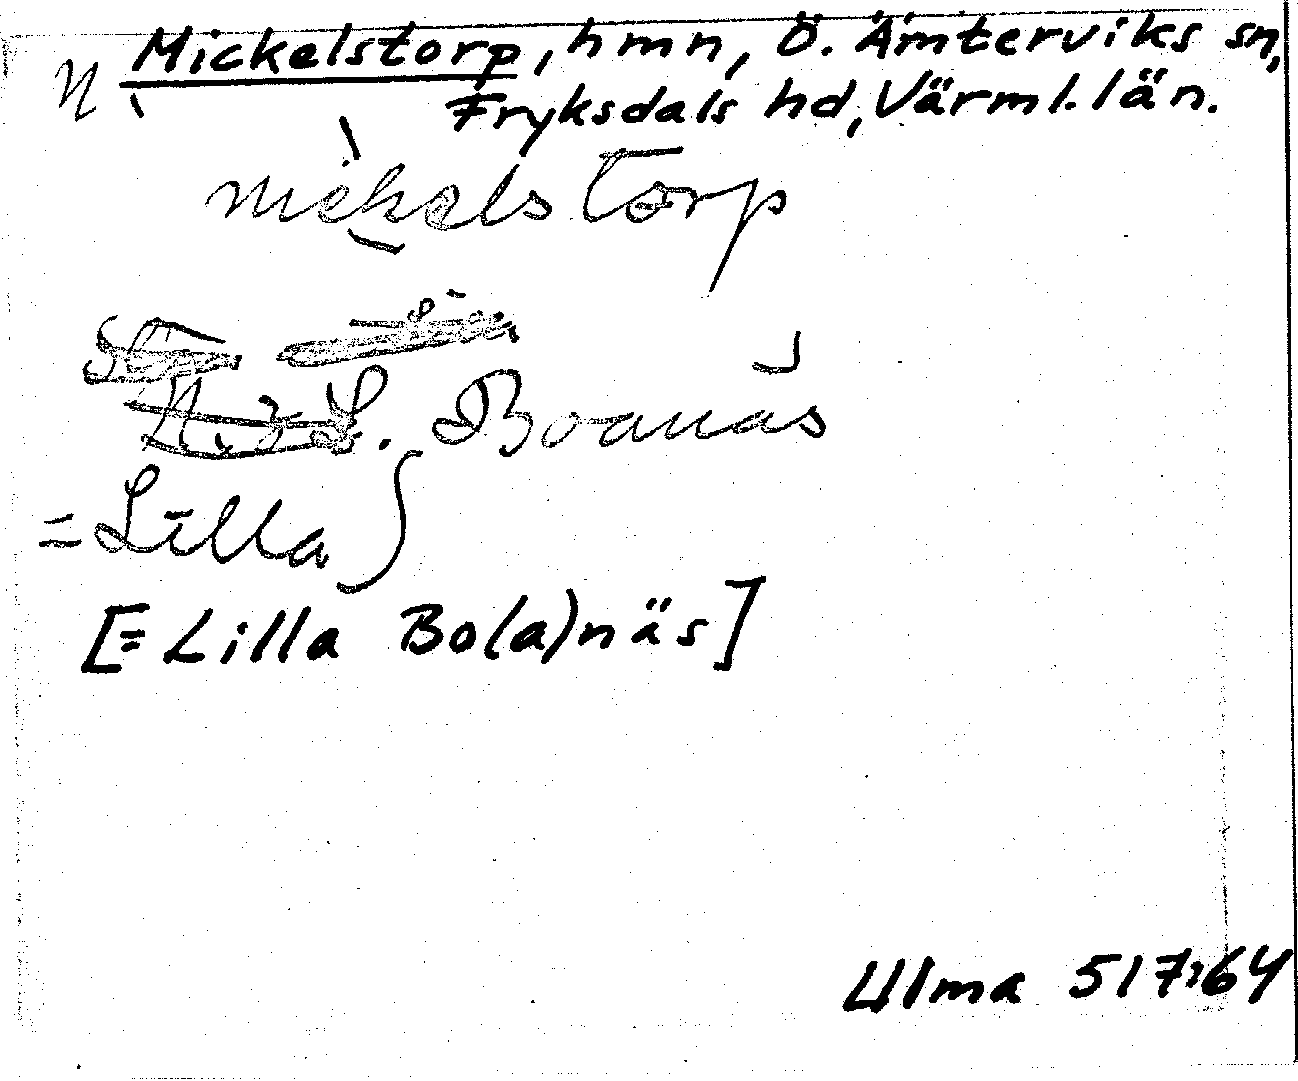 Mickelstorp, hmn, Ö. Ämterviks sn,
Fryksdals hd, Värml. län.
mekelstorp
Boanäs
= Lilla
[= Lilla Bo(a)näs]
Ulma 517:64